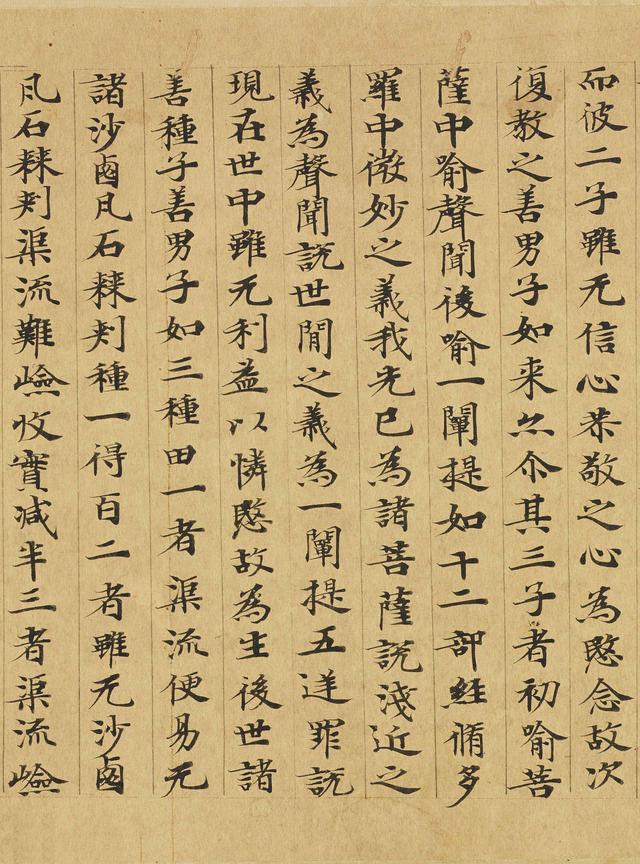 而彼二子雖无信心恭敬之心為愍念故次
復教之善男子如来亦尒其三子者初喻菩
薩中喻聲聞後喻一闡提如十二部經脩多
羅中微妙之義我先已為諸菩薩說淺近之
義為聲聞說世間之義為一闡提五逆罪說
現在世中雖无利益以憐愍故為生後世諸
善種子善男子如三種田一者渠流便易无
諸沙鹵瓦石棘刺種一得百二者雖无沙鹵
瓦石棘刺渠流難嶮收實減半三者渠流嶮